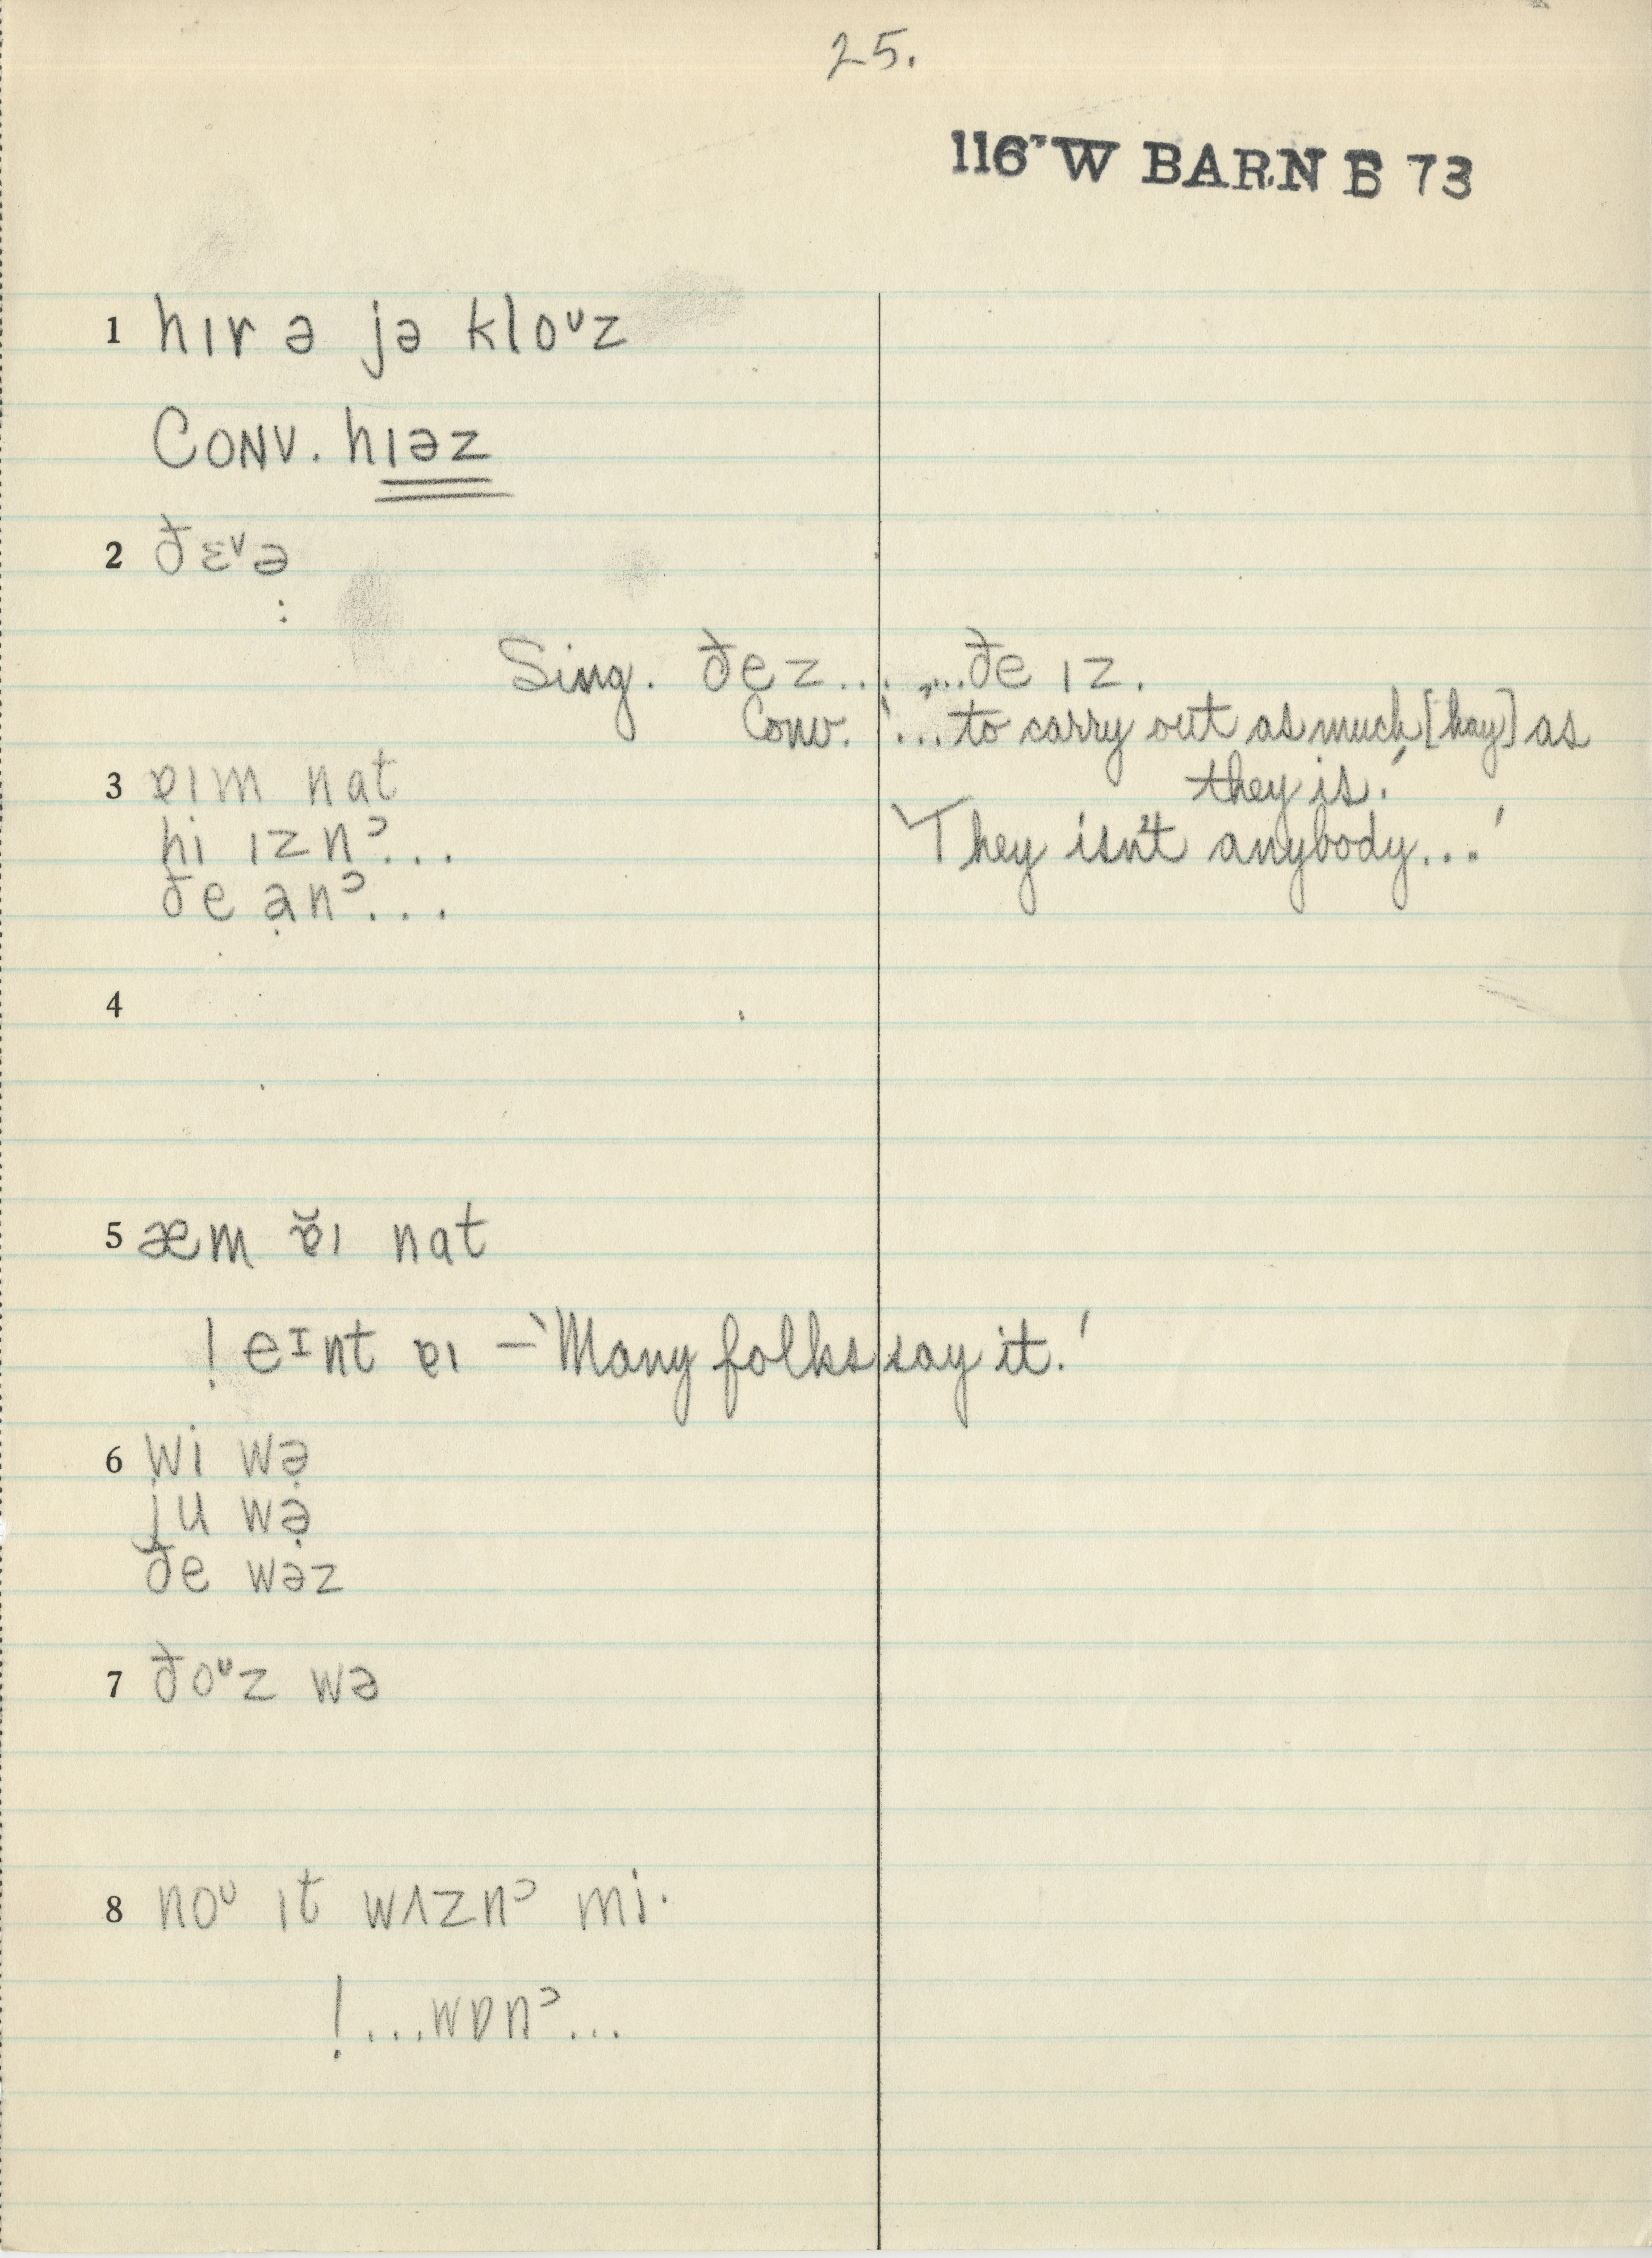 25.
116" W BARN B 73
1 hɪr ə jə kloᶷz
CONV. hɪəz
2 ðɛᵛə
:
Sing. ðe̩z... ...ðe ɪz.
Conv. '...to carry out as much [hay] as
they is.'
3 ɐɪm nat
'They isn't anybody...'
hi ɪznᵓ...
ðe a̩nᵓ...
4
5 æm ɐ̆ɪ nat
! eᶦnt ɐɪ – 'Many folks say it.'
6 wi wə̣
ju wə̣
ðe wəz
7 ðoᶷz wə
8 noᶷ ɪt wʌznᵓ mi·
!...wɒnᵓ...